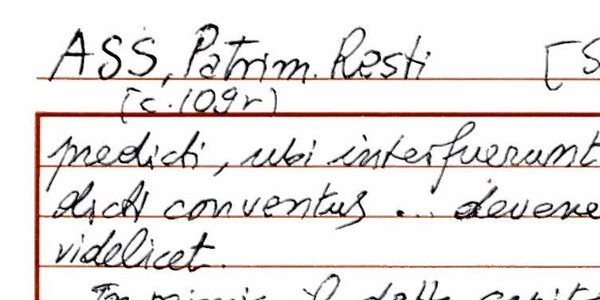 ASS, Patrim. Resti [S
[c. 109r)
predicti, ubi interfuerunt
dicti conventus ... devene
videlicet.